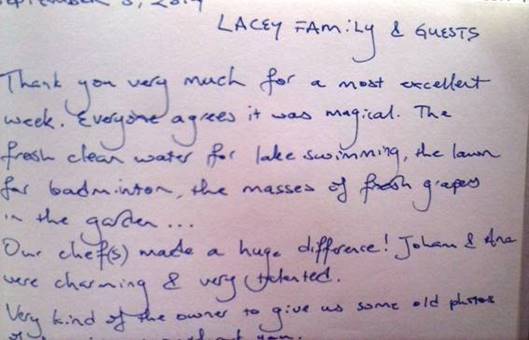 LACEY FAMILY & GUESTS
Thank you very much for a most excellent
week. Everyone agrees it was magical. The
fresh clean water for lake swimming, the lawn
for badminton, the masses of fresh grapes
in the garden...
Our chef(s) made a huge difference! Johan & Ana
were charming & very talented.
Very kind of the owner to give us some old photos